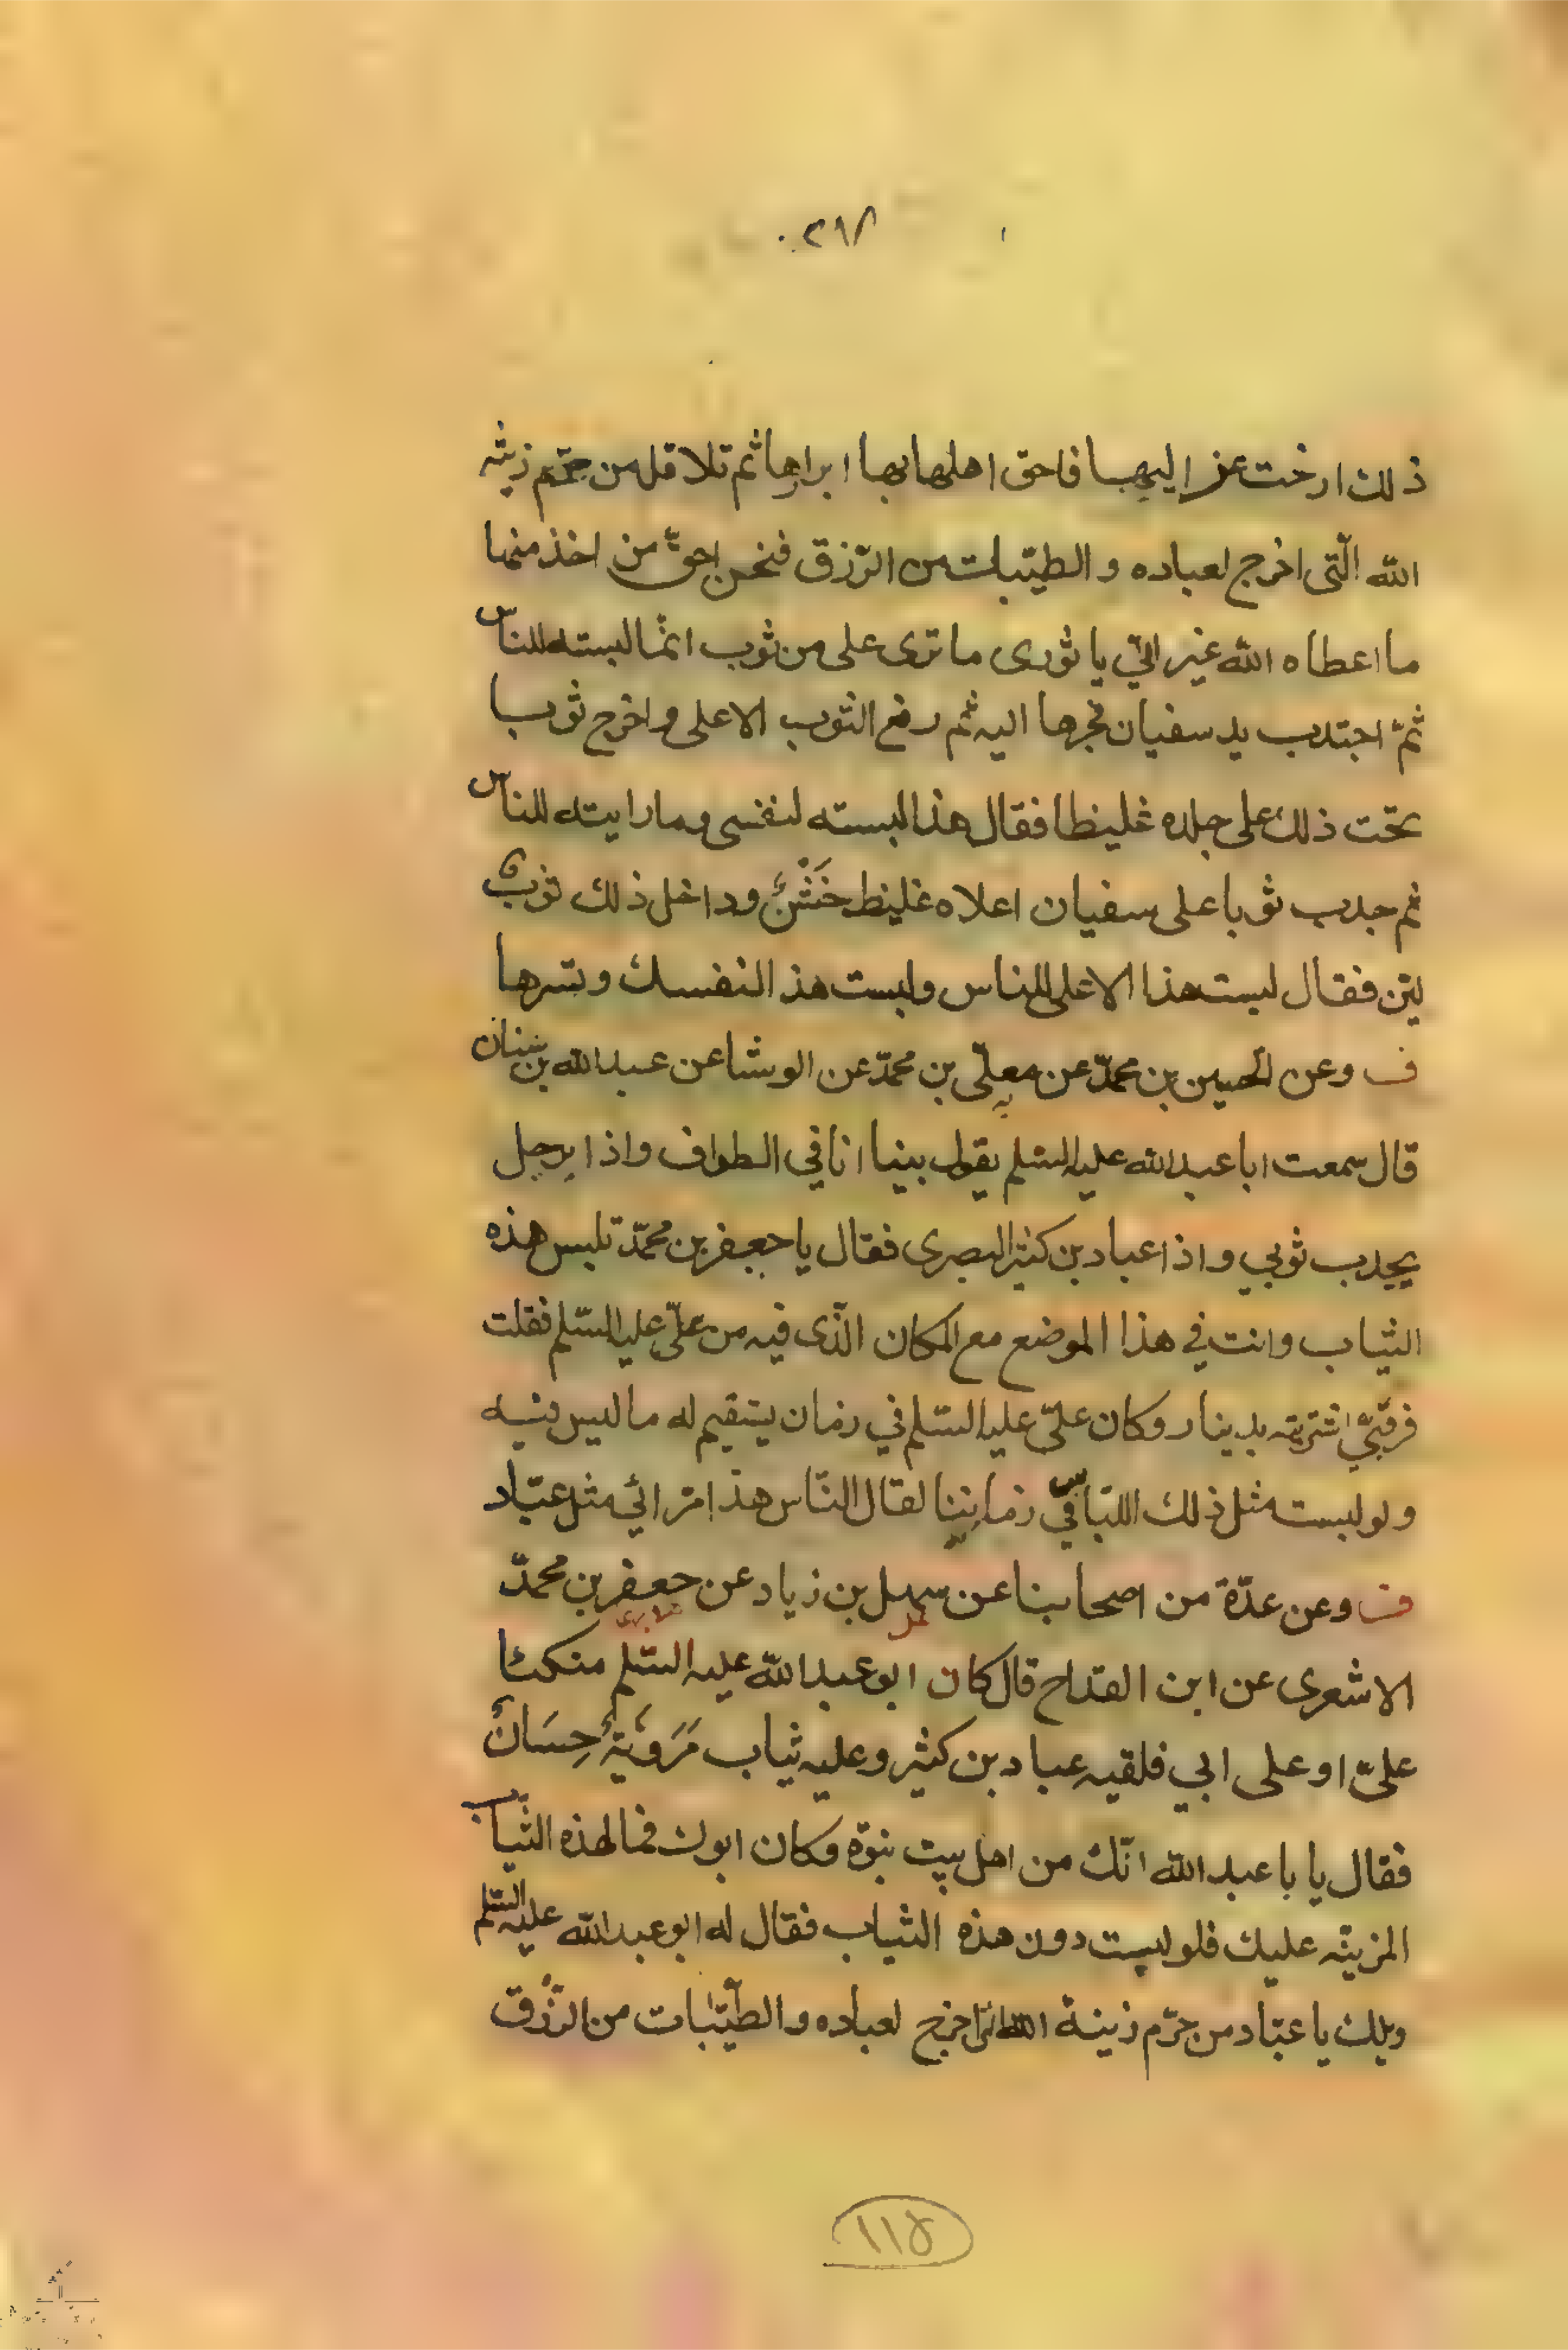 ٢٩٨
ذلك ارخت عزاليها فاحق اهلها بها ابرارها ثم تلا قل من حرّم زينة
الله الّتى اخرج لعباده و الطيّبات من الرّزق فنحن احقّ من اخذ منها
ما اعطاه الله غير انّي يا ثورى ما ترى على من ثوب انّما لبسته للناس
ثمّ اجتذب يد سفيان فجرها اليه ثم رفع الثوب الاعلى و اخرج ثوبا
تحت ذلك على جلده غليظا فقال هذا لبسته لنفسى وما رايته للناس
ثم جذب ثوبا على سفيان اعلاه غليظ خَشْنٌ وداخل ذلك ثوب
ليّن فقال لبست هذا الاعلى للناس ولبست هذا لنفسك وتسرها
ف وعن الحسين بن محمّد عن معلّى بن محمّد عن الوشا عن عبدالله بن سنان
قال سمعت ابا عبدالله عليه السّلم يقول بينا انا في الطواف واذا برجل
يجذب ثوبي واذا عباد بن كثير البصرى فقال يا جعفر بن محمّد تلبس هذه
الثياب وانت في هذا الموضع مع المكان الّذى فيه من علّى عليه السّلم فقلت
فرقبّي اشتريته بدينار وكان علّى عليه السّلم في زمان يستقيم له ما لبس فيه
ولو لبست مثل ذلك اللّباس في زماننا لقال النّاس هذا مرائي مثل عبّاد
ف وعن عدّة من اصحابنا عن سهل بن زياد عن جعفر بن محمّد
الاشعرى عن ابن القداح قال كان ابو عبدالله عليه السّلم متكئا
علىّ او على ابي فلقيه عباد بن كثير وعليه ثياب مَرَويّةٌ حِسَانٌ
فقال يا با عبدالله انّك من اهل بيت نبوّة وكان ابوك فما لهذه الثّياب
المزينّه عليك فلو لبست دون هذه الثياب فقال له ابو عبدالله عليه السّلم
ويلك يا عبّاد من حرّم زينة الله الّتى اخرج لعباده والطّيّبات من الرّزق
١١٥